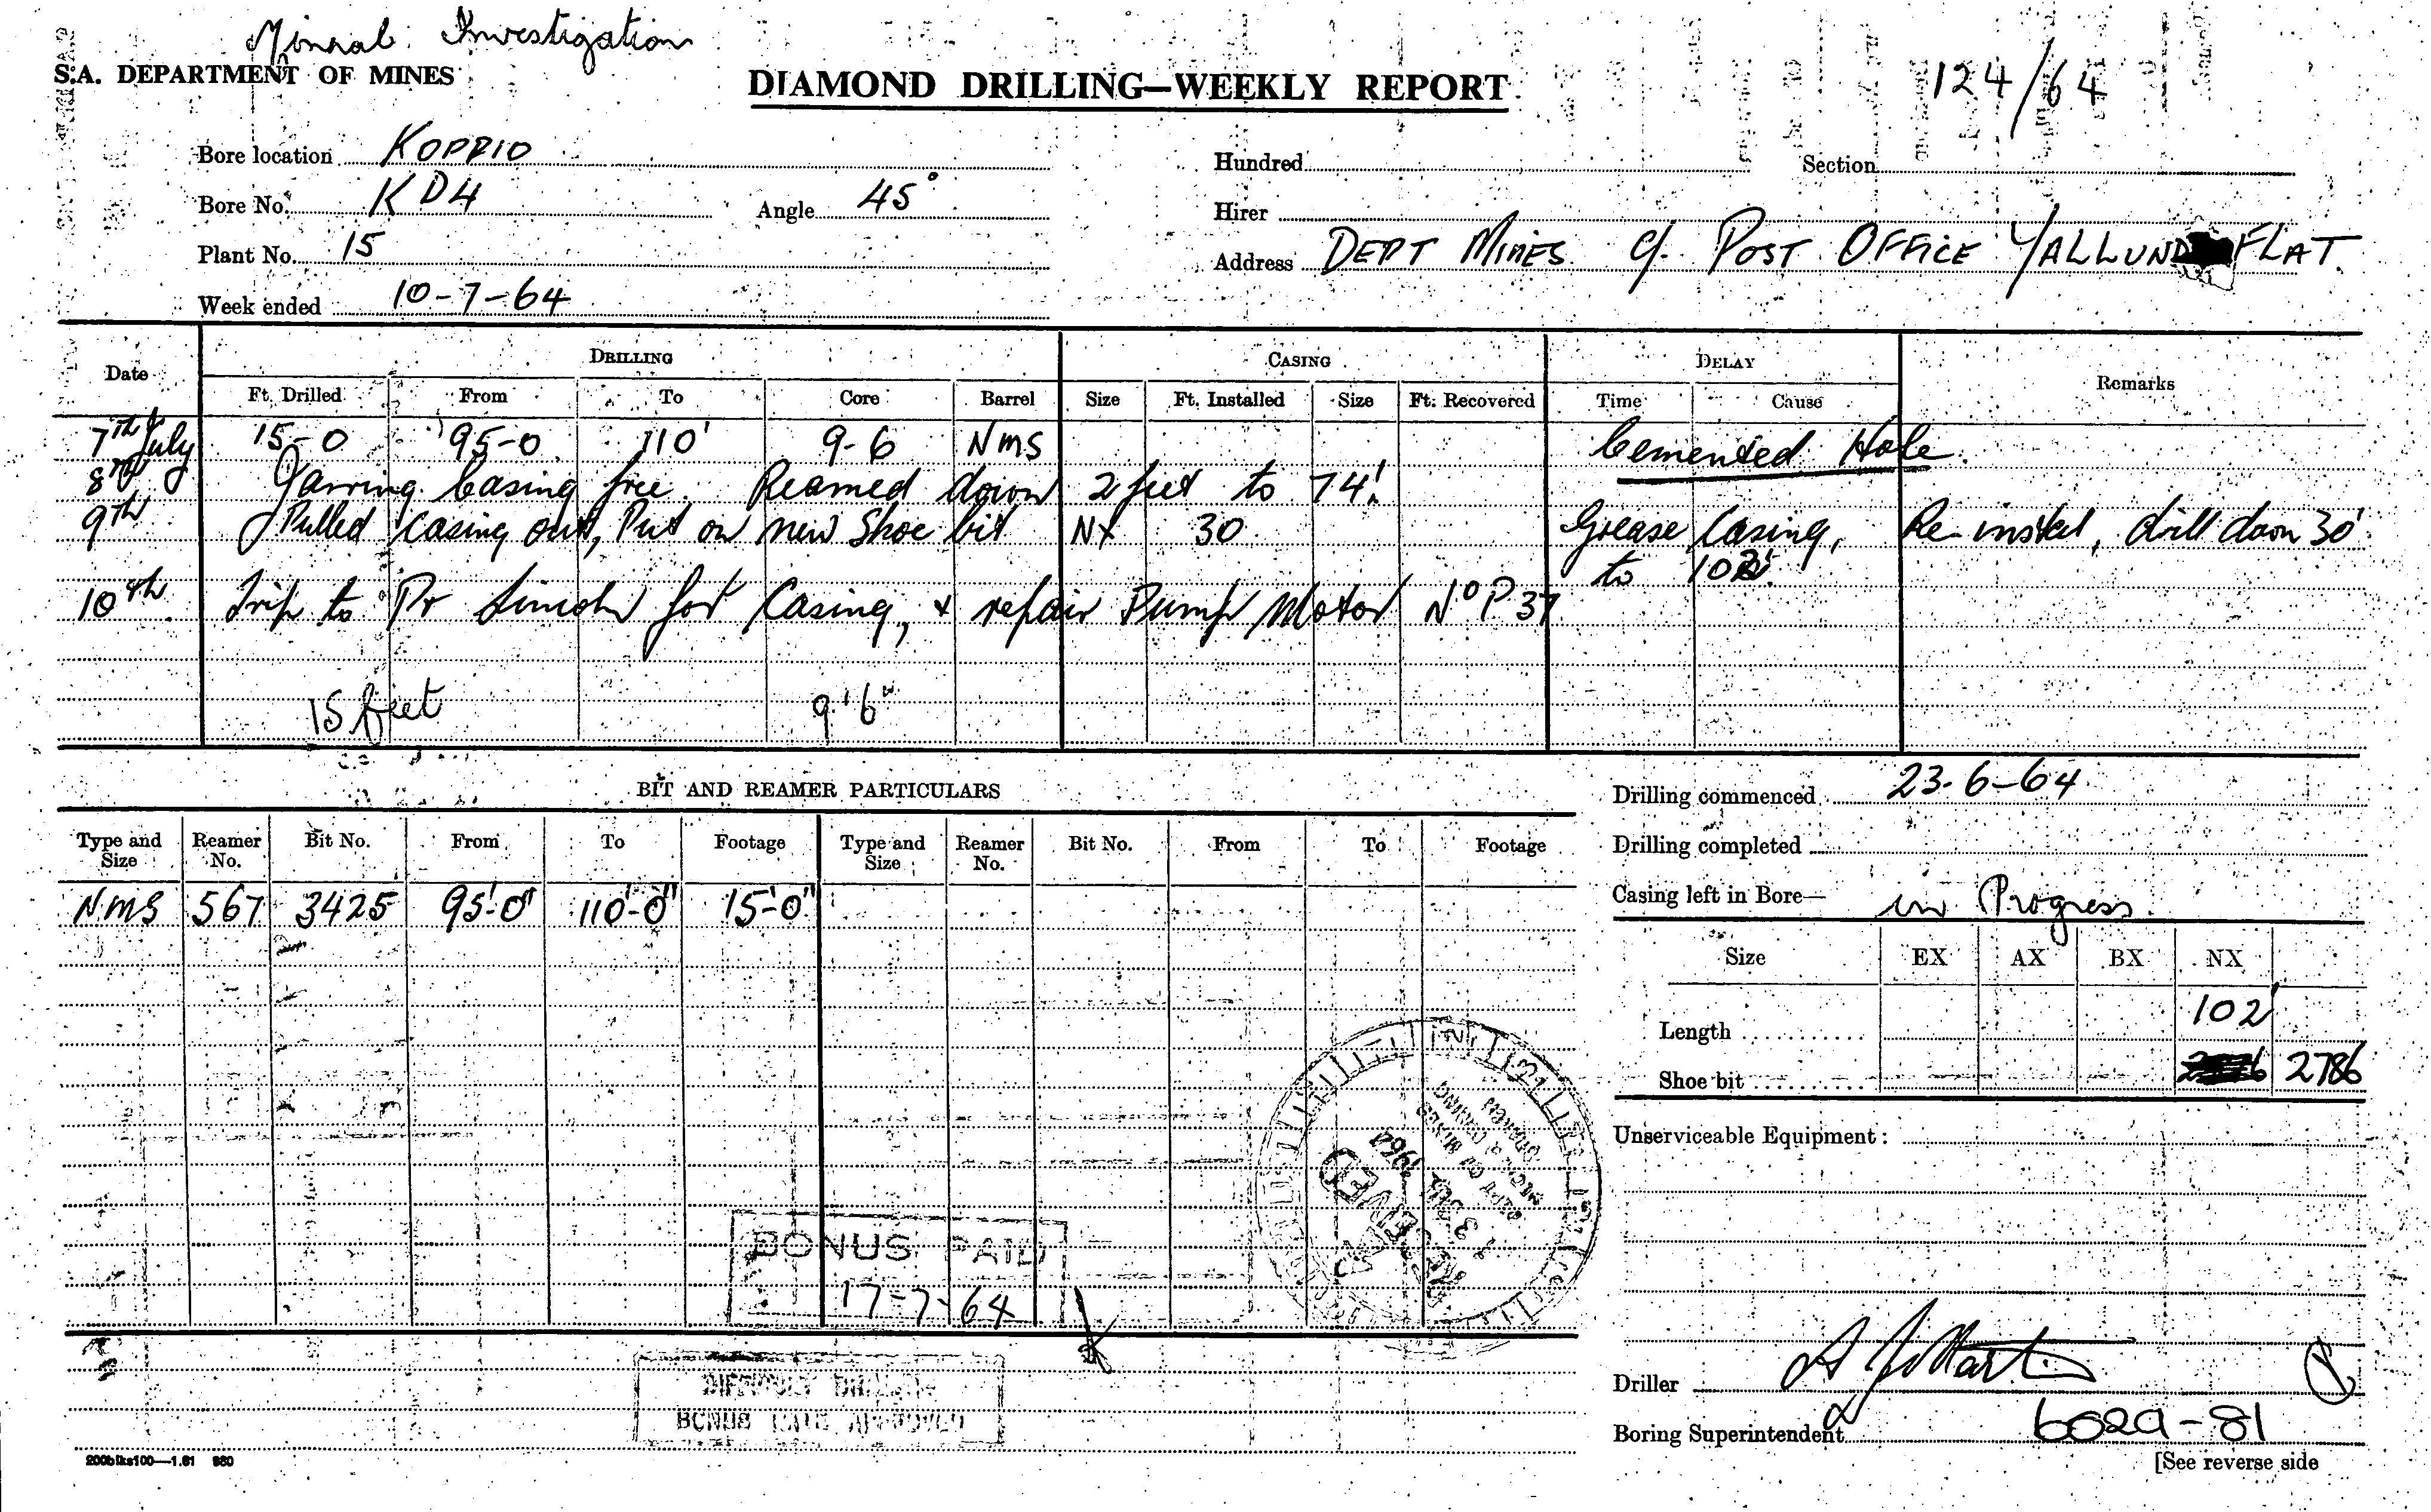 Mineral Investigation
S.A. DEPARTMENT OF MINES
DIAMOND DRILLING—WEEKLY REPORT
124/64
Bore location KOPPIO
Hundred
Section
Bore No. KD4
Angle 45°
Hirer
Plant No. 15
Address DEPT MINES C/- POST OFFICE YALLUND FLAT.
Week ended 10-7-64
Date
DRILLING
CASING
DELAY
Remarks
Ft. Drilled From To Core Barrel Size Ft. Installed Size Ft. Recovered Time Cause
7TH July 15-0 95-0 110' 9-6 NMS Cemented Hole.
8TH Jarring Casing free. Reamed down 2 feet to 74'.
9TH Pulled casing out, Put on new Shoe bit NX 30 Grease Casing, Re-install, drill down 30'
to 102'.
10th Trip to Pt Lincoln for Casing, & repair Pump Motor No P37
15 feet 9'6"
BIT AND REAMER PARTICULARS
Drilling commenced 23-6-64
Type and Size Reamer No. Bit No. From To Footage Type and Size Reamer No. Bit No. From To Footage
Drilling completed
NMS 567 3425 95'-0" 110'-0" 15'-0"
Casing left in Bore— in Progress.
Size EX AX BX NX
Length 102'
Shoe bit 2786
Unserviceable Equipment :
DEPT OF MINES
RECEIVED
13 JUL 1964
BONUS PAID
17-7-64
BONUS RATE APPROVED
Driller
Boring Superintendent
6029-81
200blks100—1.61 980
[See reverse side